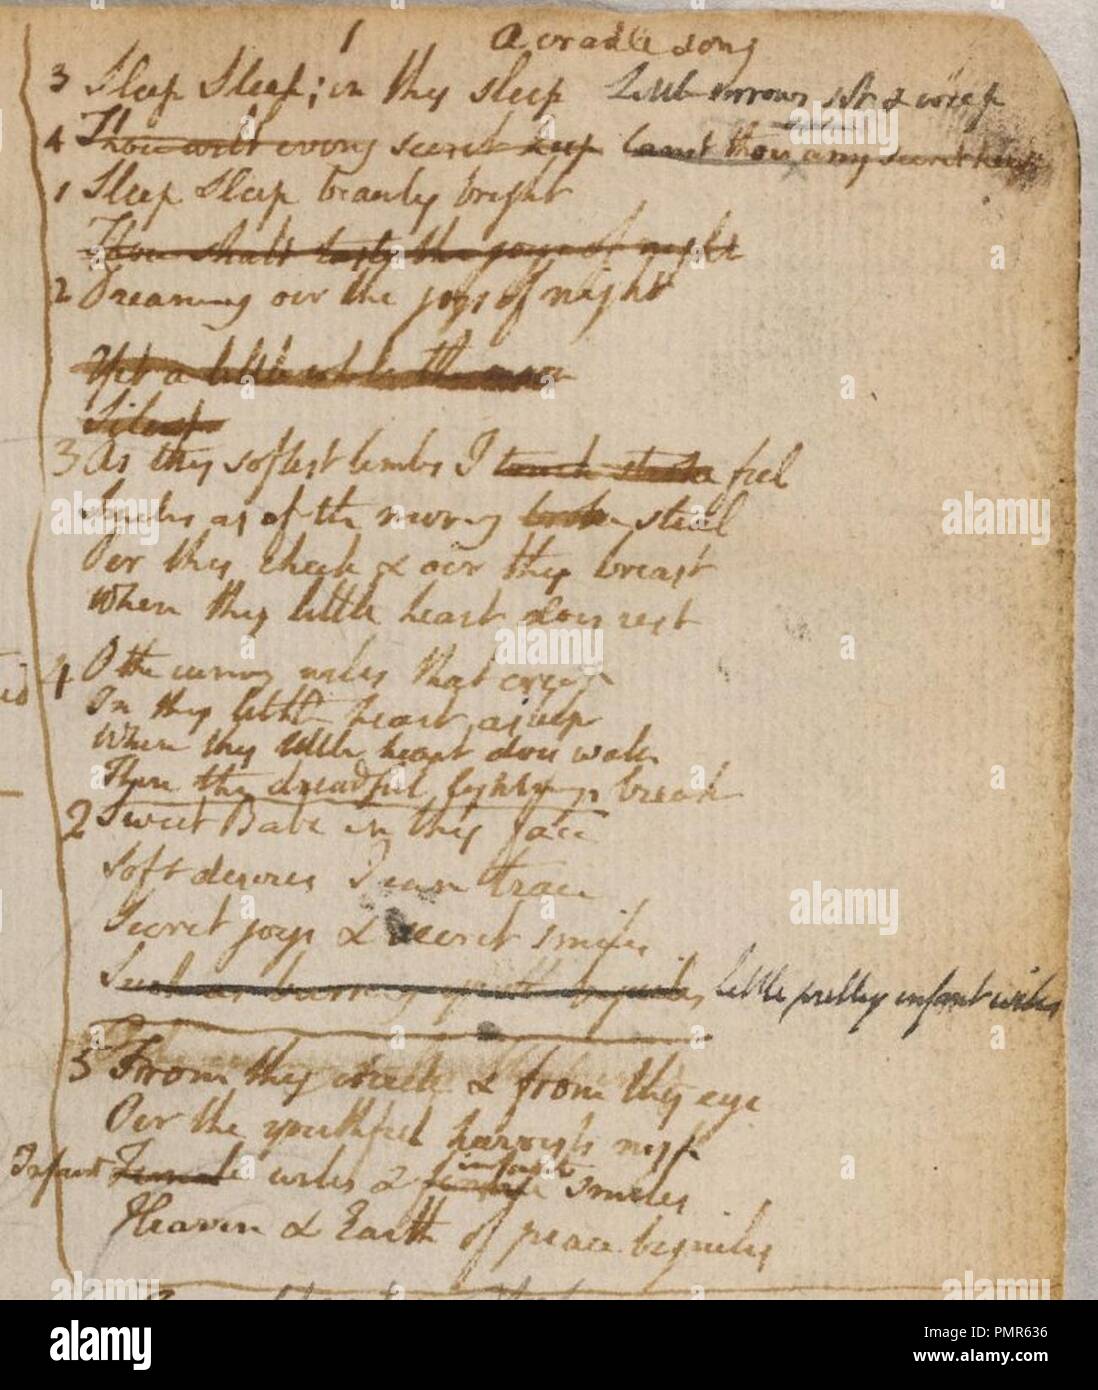 1 a cradle song
3 Sleep Sleep; in thy sleep Little sorrows sit & weep
4 Thou wilt every secret keep Canst thou any secret keep
1 Sleep Sleep beauty bright
Thou shalt taste the joys of night
2 Dreaming oer the joys of night
Yet a little while the moon
Silent
3 As thy softest limbs I touch feel
Smiles as of the morning broke steal
Oer thy cheek & oer thy breast
When thy little heart does rest
4 O the cunning wiles that creep
In thy little heart asleep
When thy little heart does wake
Then the dreadful lightnings break
2 Sweet Babe in thy face
Soft desires I can trace
Secret joys & secret smiles
Such as burning youth beguiles Little pretty infant wiles
5 From thy cheek & from thy eye
Oer the youthful harvests nigh
infant
Infant Female wiles & female smiles
Heaven & Earth of peace beguiles
alamy
a
alamy
Image ID: PMR636
www.alamy.com